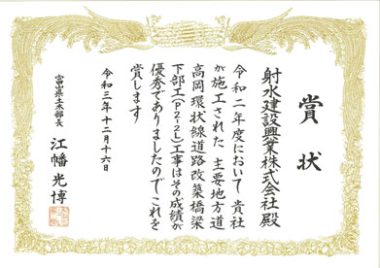 賞状
射水建設興業株式会社殿
令和二年度において貴社
が施工された主要地方道
高岡環状線道路改築橋梁
下部工(P2-2L)工事はその成績が
優秀でありましたのでこれを
賞します
令和三年十二月十六日
富山県土木部長 江幡光博